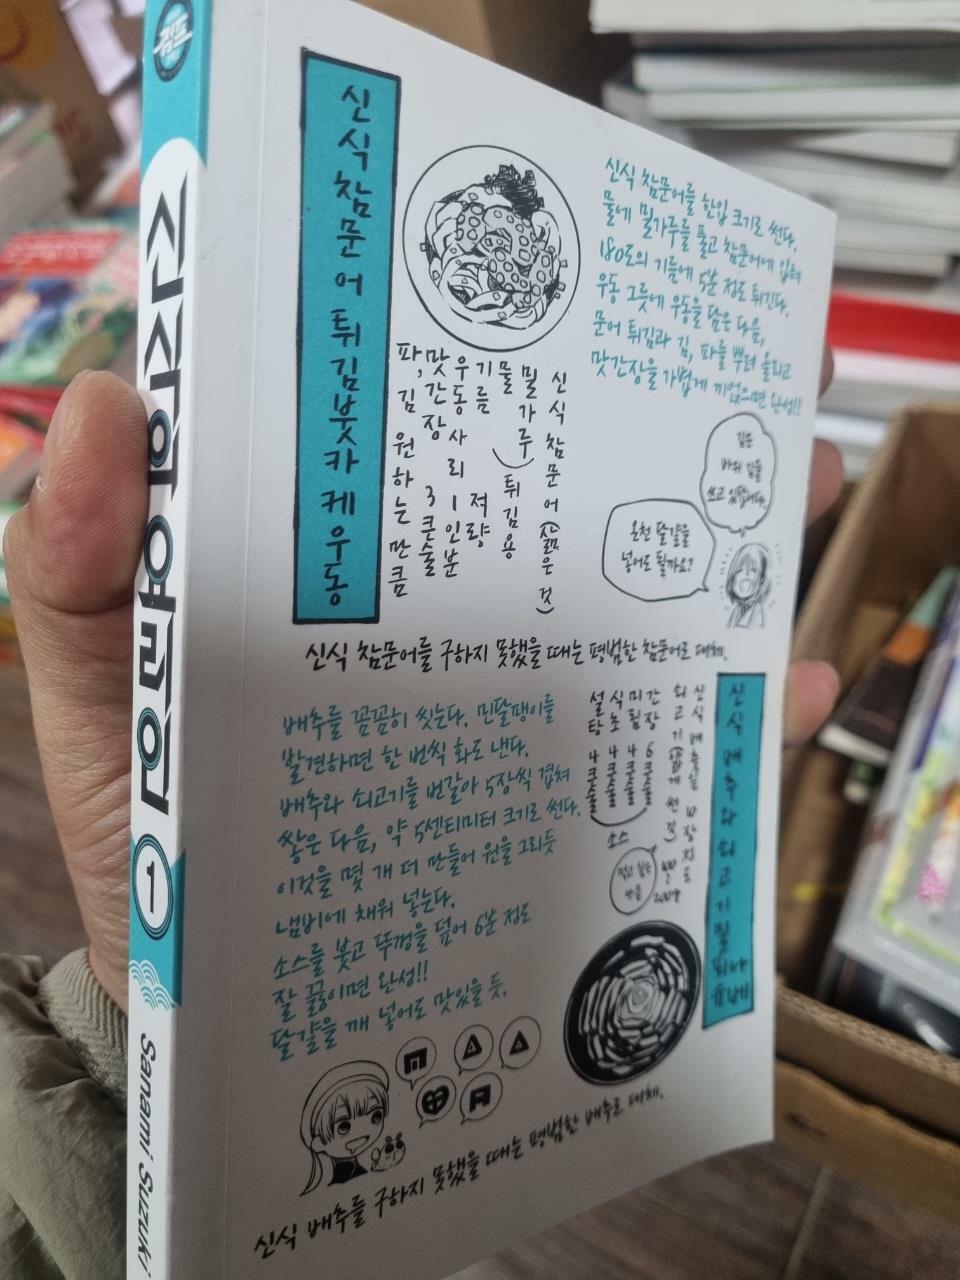 신식의 요리인
1
Sanami Suzuki
신식 참문어 튀김 붓카케 우동
신식 참문어를 한입 크기로 썬다.
물에 밀가루를 풀고 참문어에 입혀
180도의 기름에 5분 정도 튀긴다.
우동 그릇에 우동을 담은 다음,
문어 튀김과 김, 파를 뿌려 올리고
맛간장을 가볍게 끼얹으면 완성!!
신식 참문어(삶은 것)
밀가루
물
튀김용
기름 적량
우동 사리 1인분
맛간장 3큰술
파, 김 원하는 만큼
김은
바위 김을
쓰고 있답니다.
온천 달걀을
넣어도 될까요?
신식 참문어를 구하지 못했을 때는 평범한 참문어로 대체.
신식 배추와 쇠고기 밀푀유
배추를 꼼꼼히 씻는다. 민달팽이를
발견하면 한 번씩 화도 낸다.
배추와 쇠고기를 번갈아 5장씩 겹쳐
쌓은 다음, 약 5센티미터 크기로 썬다.
이것을 몇 개 더 만들어 원을 그리듯
냄비에 채워 넣는다.
소스를 붓고 뚜껑을 덮어 6분 정도
잘 끓이면 완성!!
달걀을 깨 넣어도 맛있을 듯.
신식 배춧잎 10장 정도
쇠고기(얇게 썬 것) 200g
간장 6큰술
미림 4큰술
식초 4큰술
설탕 4큰술
소스
신식 배추를 구하지 못했을 때는 평범한 배추로 대체.